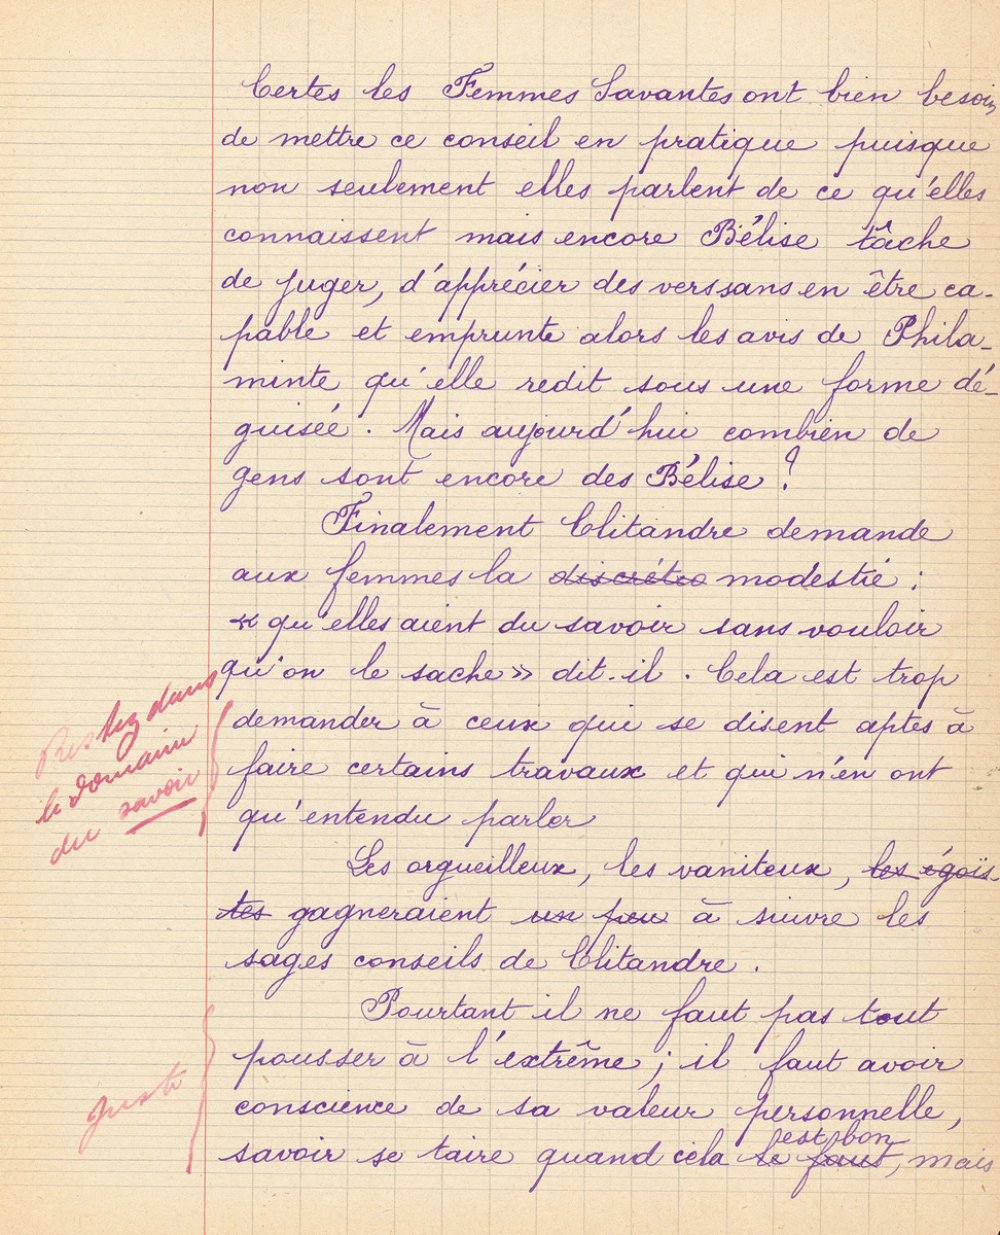 Certes les Femmes Savantes ont bien besoin
de mettre ce conseil en pratique puisque
non seulement elles parlent de ce qu'elles
connaissent mais encore Bélise tâche
de juger, d'apprécier des vers sans en être ca-
pable et emprunte alors les avis de Phila-
minte qu'elle redit sous une forme dé-
guisée. Mais aujourd'hui combien de
gens sont encore des Bélise ?
Finalement Clitandre demande
aux femmes la discrétio modestie :
« qu'elles aient du savoir sans vouloir
qu'on le sache » dit-il. Cela est trop
Restez dans
le domaine
du savoir
demander à ceux qui se disent aptes à
faire certains travaux et qui n'en ont
qu'entendu parler
Les orgueilleux, les vaniteux, les égoïs-
tes gagneraient un peu à suivre les
sages conseils de Clitandre.
Pourtant il ne faut pas tout
pousser à l'extrême ; il faut avoir
juste
conscience de sa valeur personnelle,
est bon
savoir se taire quand cela le faut, mais